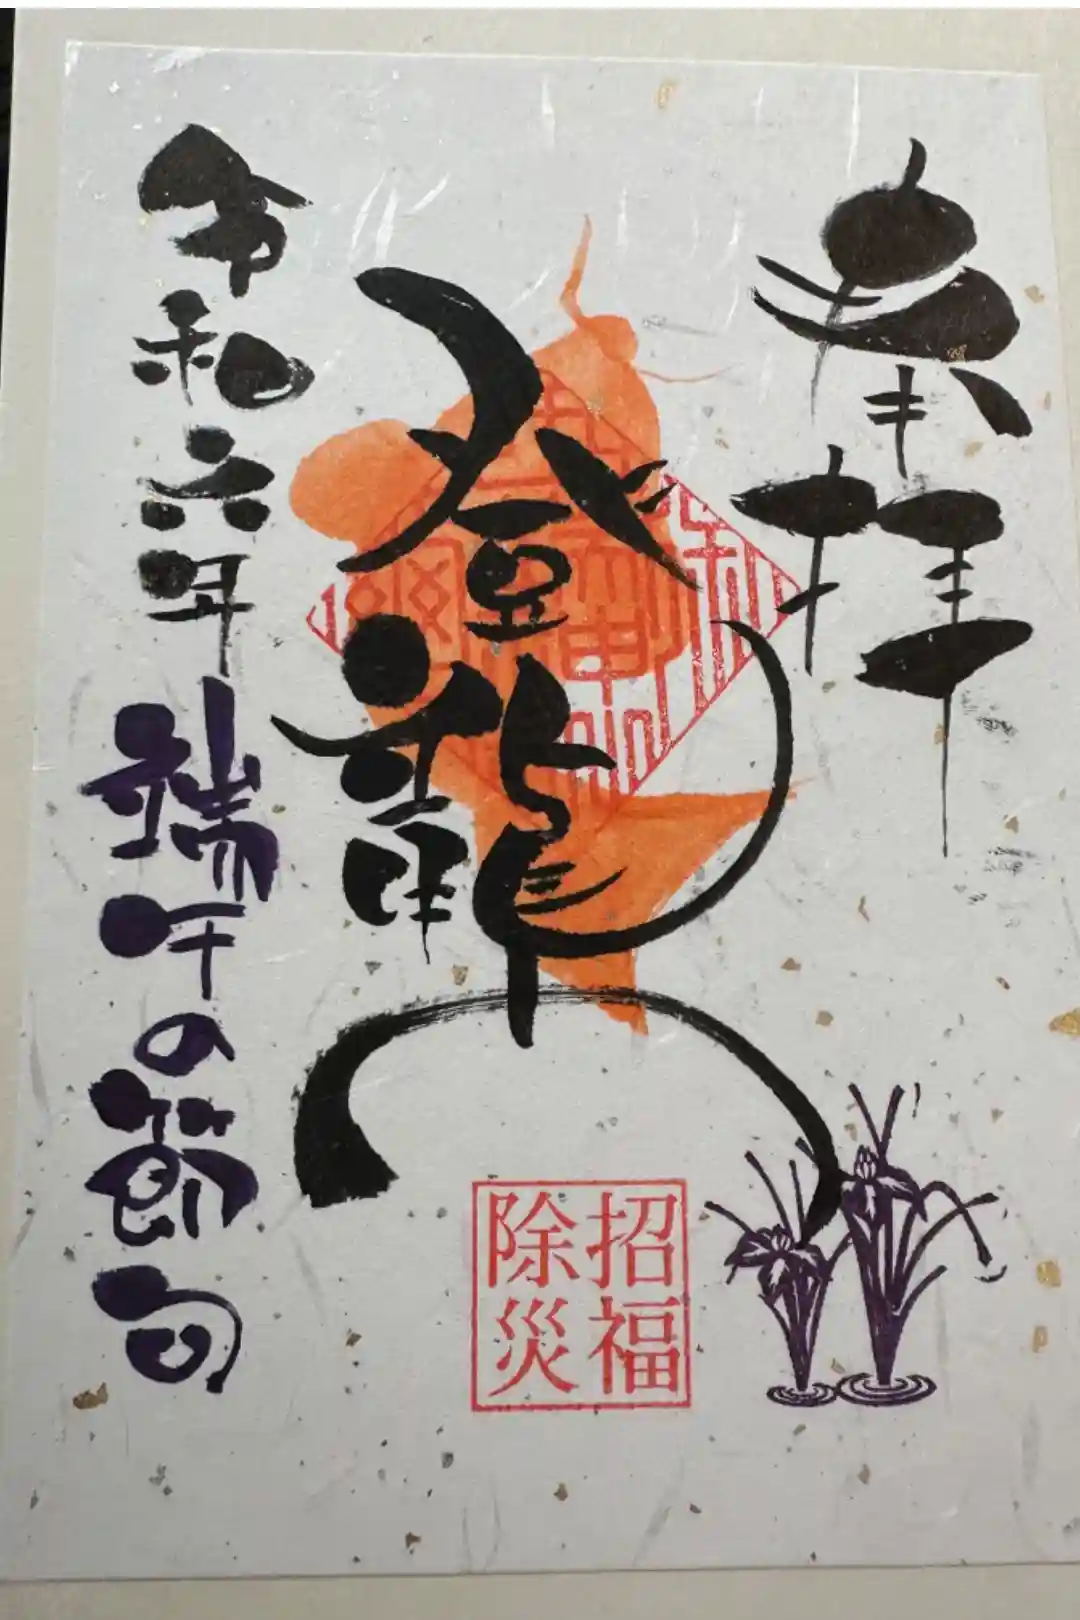 奉拝
登龍門
令和六年
端午の節句
招福
除災